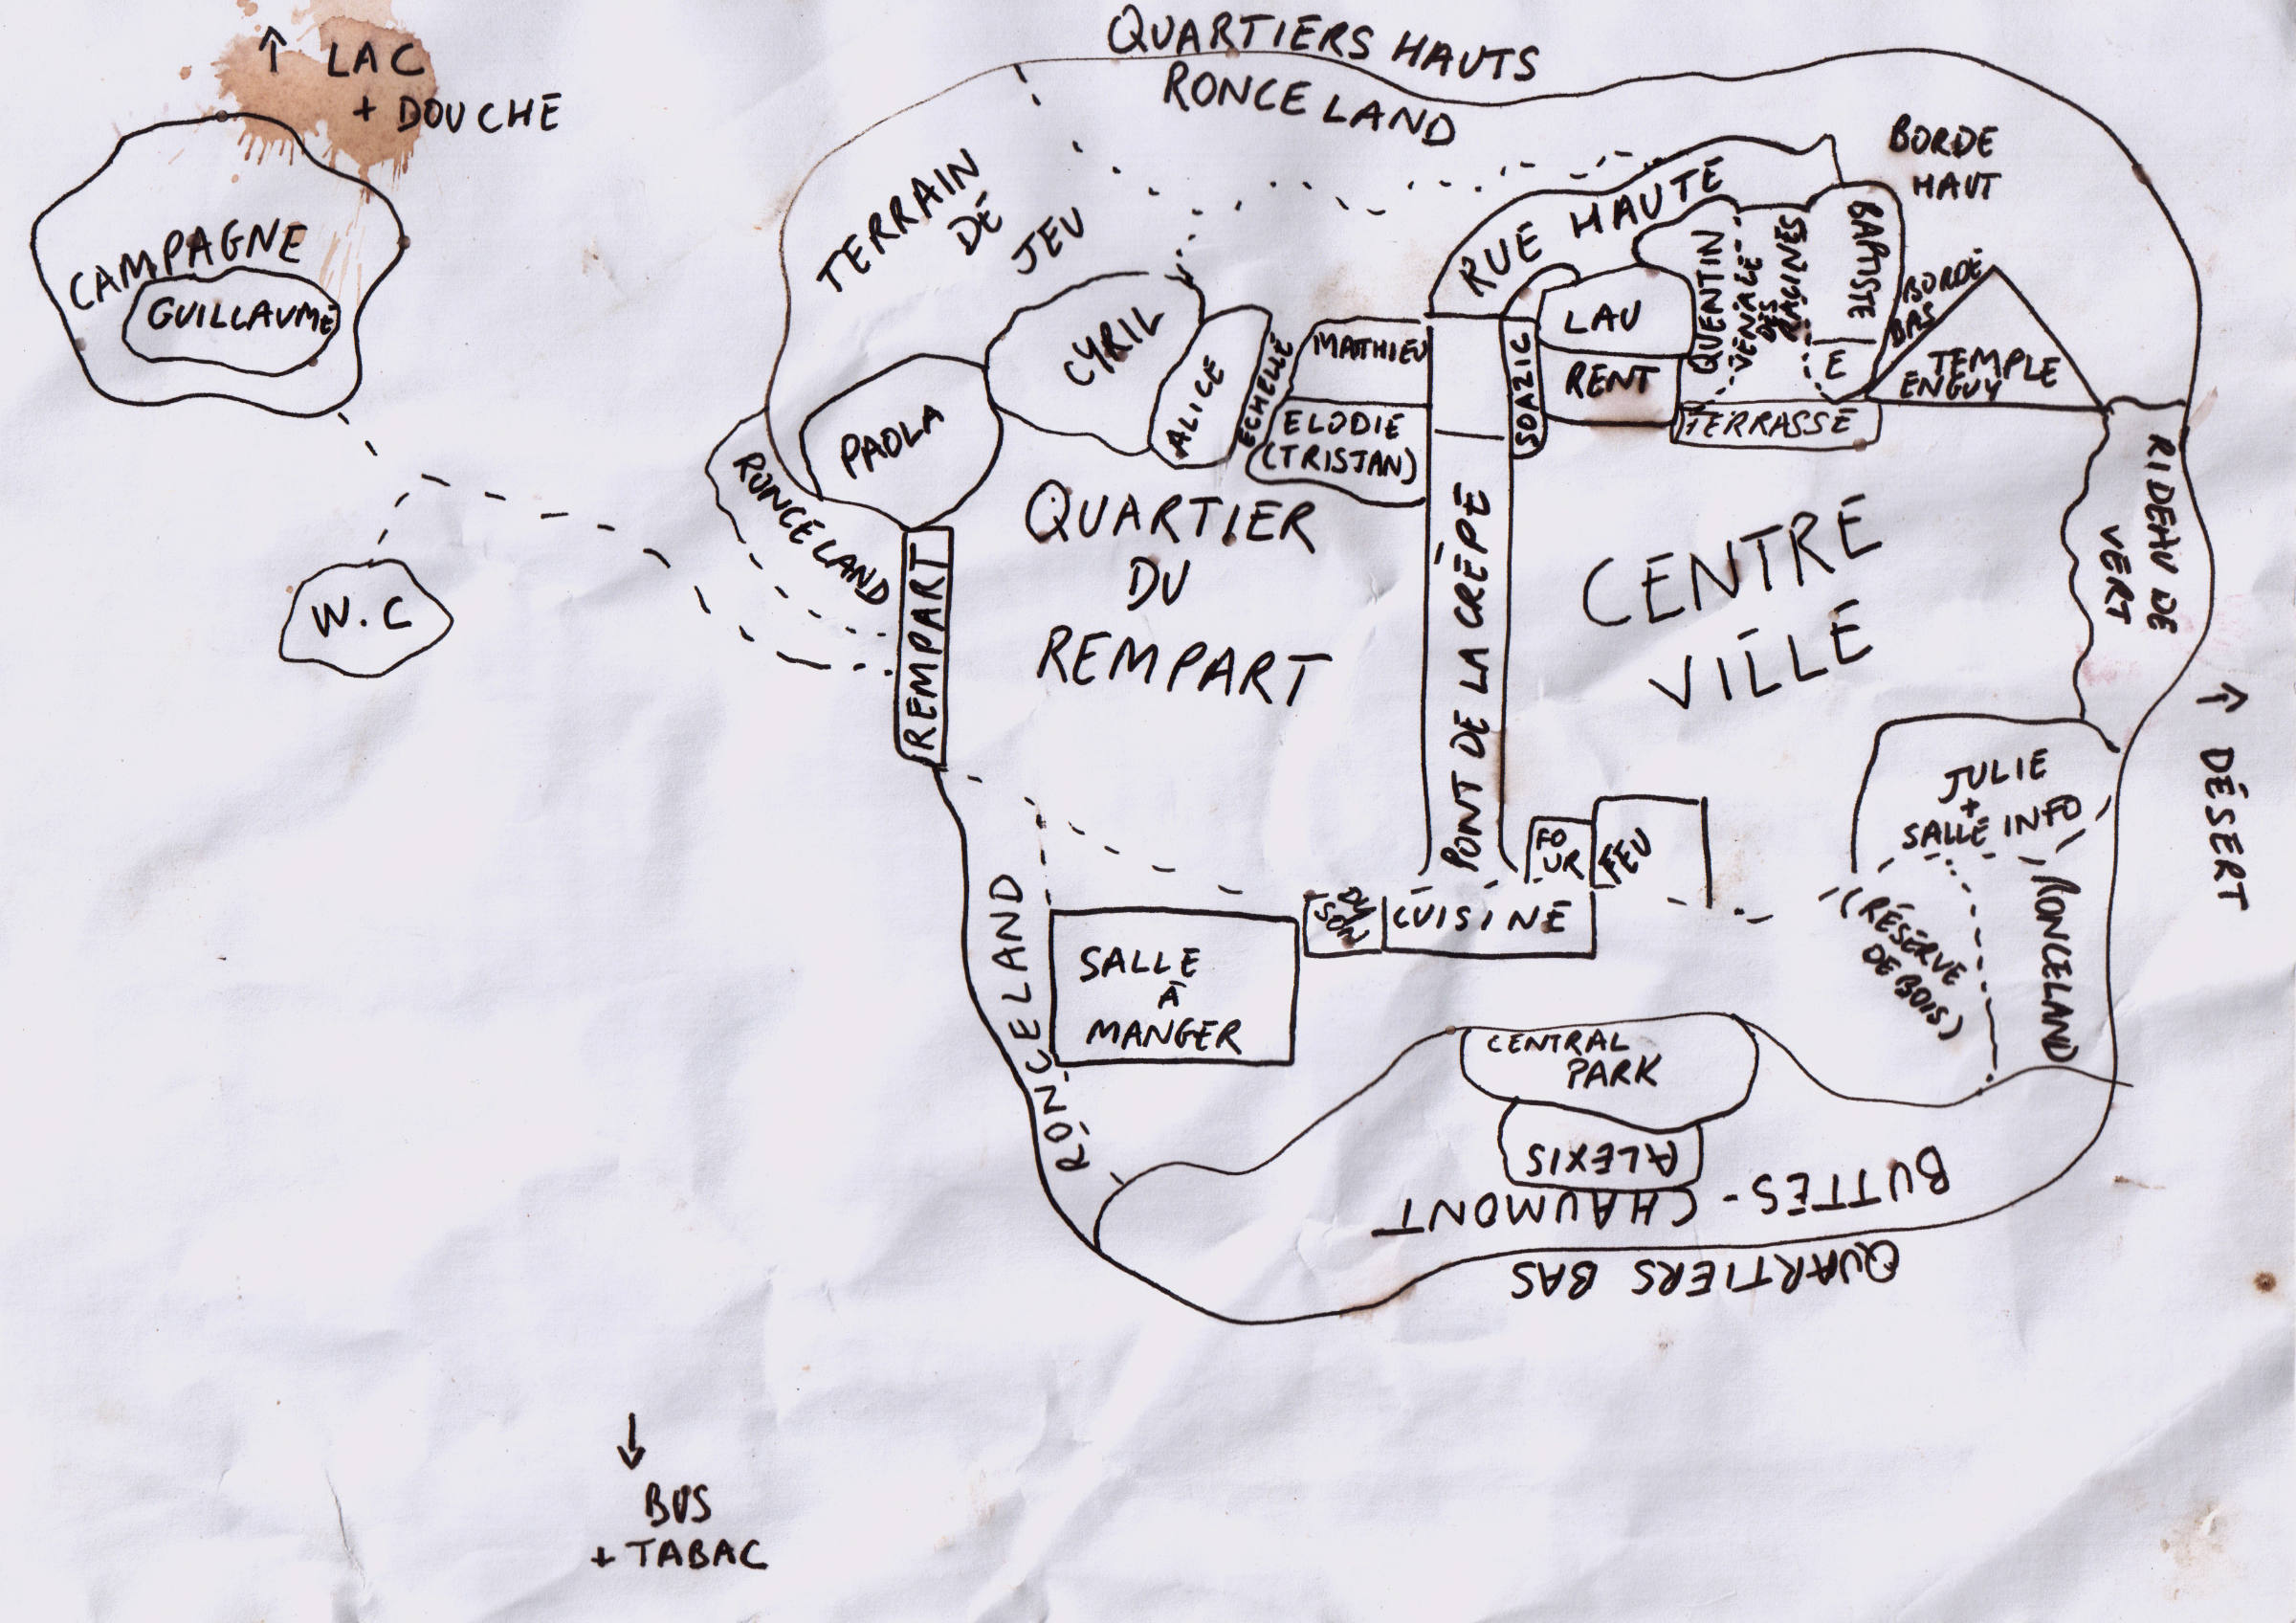 ↑ LAC
+ DOUCHE
CAMPAGNE
GUILLAUME
W.C
QUARTIERS HAUTS
RONCELAND
TERRAIN
DE
JEU
RUE HAUTE
BORDE
HAUT
BORDE
BAS
CYRIL
ALICE
ECHELLE
MATHIEU
ELODIE
(TRISTAN)
SOAZIC
LAU
RENT
QUENTIN
VENELLE
DES
RACINES
BAPTISTE
E
TERRASSE
TEMPLE
ENGUY
PAOLA
RONCELAND
REMPART
QUARTIER
DU
REMPART
PONT DE LA CRÊPE
CENTRE
VILLE
RIDEAU DE
VERT
→ DÉSERT
JULIE
+
SALLE INFO
(RÉSERVE
DE BOIS)
RONCELAND
FO
UR
FEU
DU
SON
CUISINE
SALLE
À
MANGER
RONCELAND
CENTRAL
PARK
ALEXIS
BUTTES-CHAUMONT
QUARTIERS BAS
↓
BUS
+ TABAC